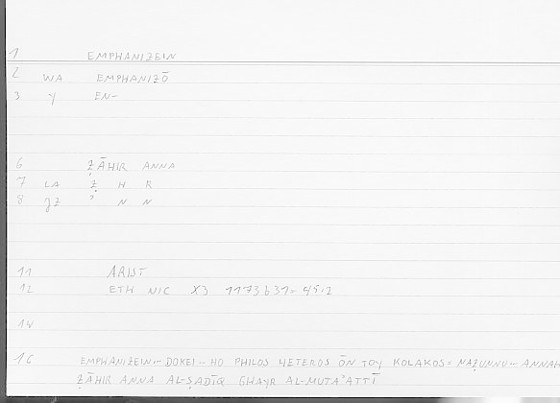 1 EMPHANIZEIN
2 WA EMPHANIZŌ
3 Y EN-
6 ẒĀHIR ANNA
7 LA Ẓ H R
8 JZ ʾ N N
11 ARIST
12 ETH NIC X3 1173b31-
14
16 EMPHANIZEIN - DOKEI - HO PHILOS HETEROS ŌN TOY KOLAKOS = NAẒUNNU - ANNAH
ẒĀHIR ANNA AL-ṢADĪQ GHAYR AL-MUTAʾATTĪ